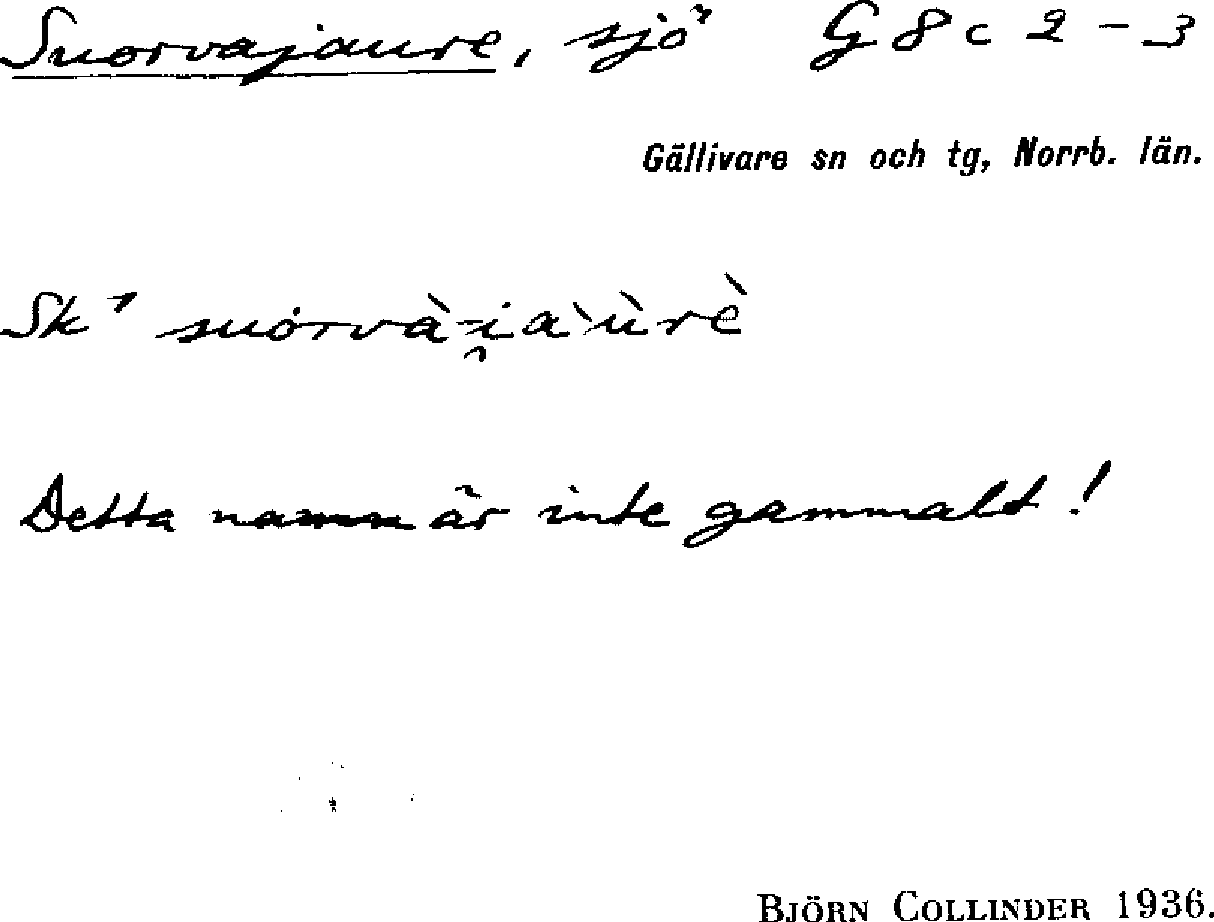 Suorvajaure, sjö G 8 c 2-3
Gällivare sn och tg, Norrb. län.
Sk¹ suorvà-i̯àùrè
Detta namn är inte gammalt!
BJÖRN COLLINDER 1936.